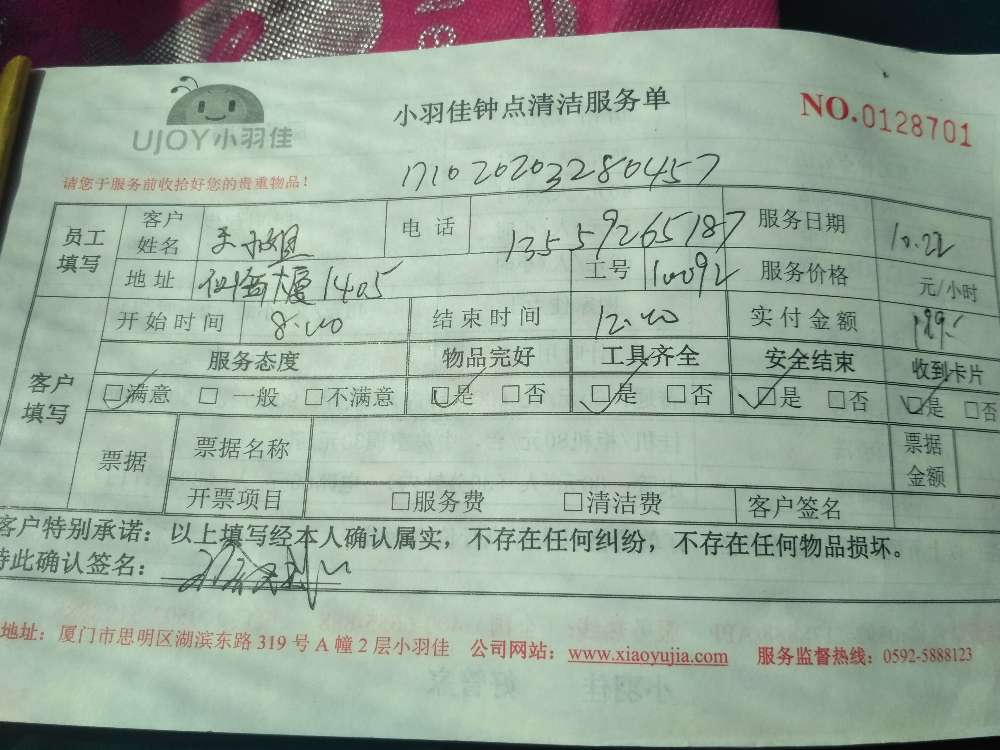 UJOY小羽佳
小羽佳钟点清洁服务单
NO.0128701
请您于服务前收拾好您的贵重物品！
171020203280457
员工填写 客户姓名 电话 13559265187 服务日期 10.22
地址 大厦1405 工号 10092 服务价格 元/小时
客户填写 开始时间 8:00 结束时间 12:00 实付金额
服务态度 物品完好 工具齐全 安全结束 收到卡片
□满意 □一般 □不满意 □是 □否 □是 □否 □是 □否 □是 □否
票据 票据名称 票据金额
开票项目 □服务费 □清洁费 客户签名
客户特别承诺：以上填写经本人确认属实，不存在任何纠纷，不存在任何物品损坏。
特此确认签名：
地址：厦门市思明区湖滨东路319号A幢2层小羽佳 公司网站：www.xiaoyujia.com 服务监督热线：0592-5888123